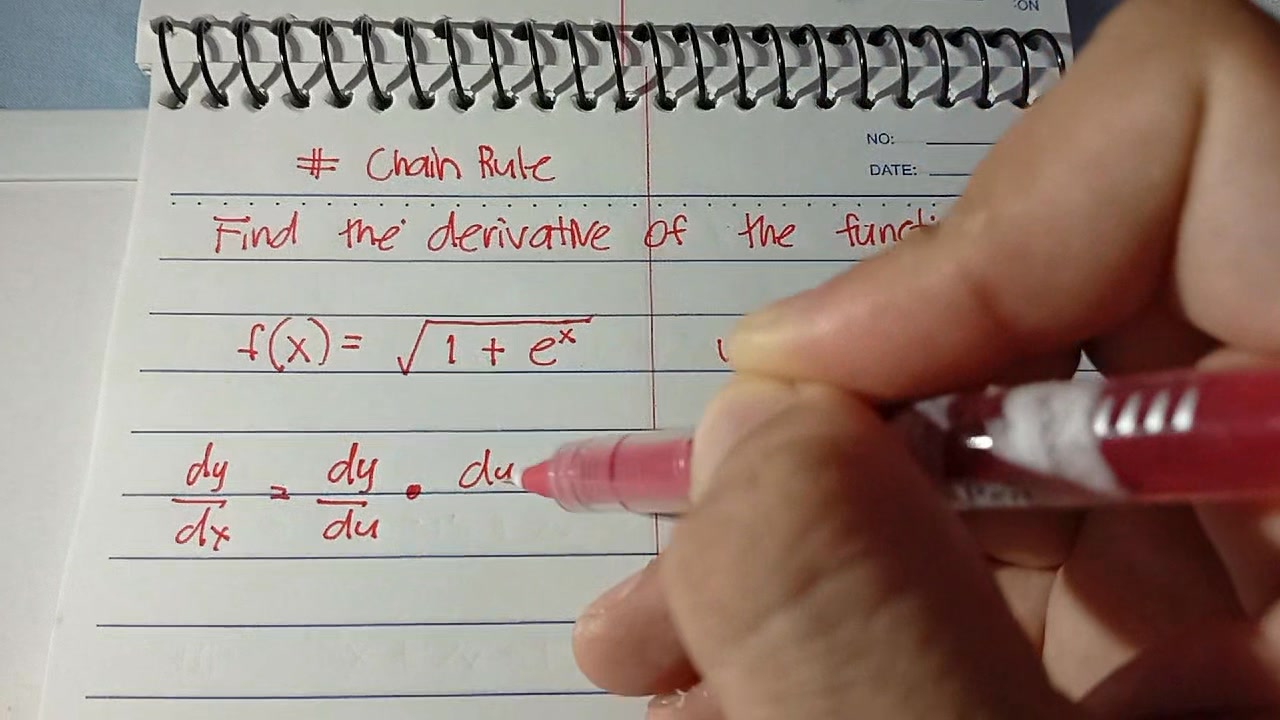 :ON
NO:
DATE:
# Chain Rule
Find the derivative of the
f(x) = √(1 + eˣ)
dy/dx = dy/du • du